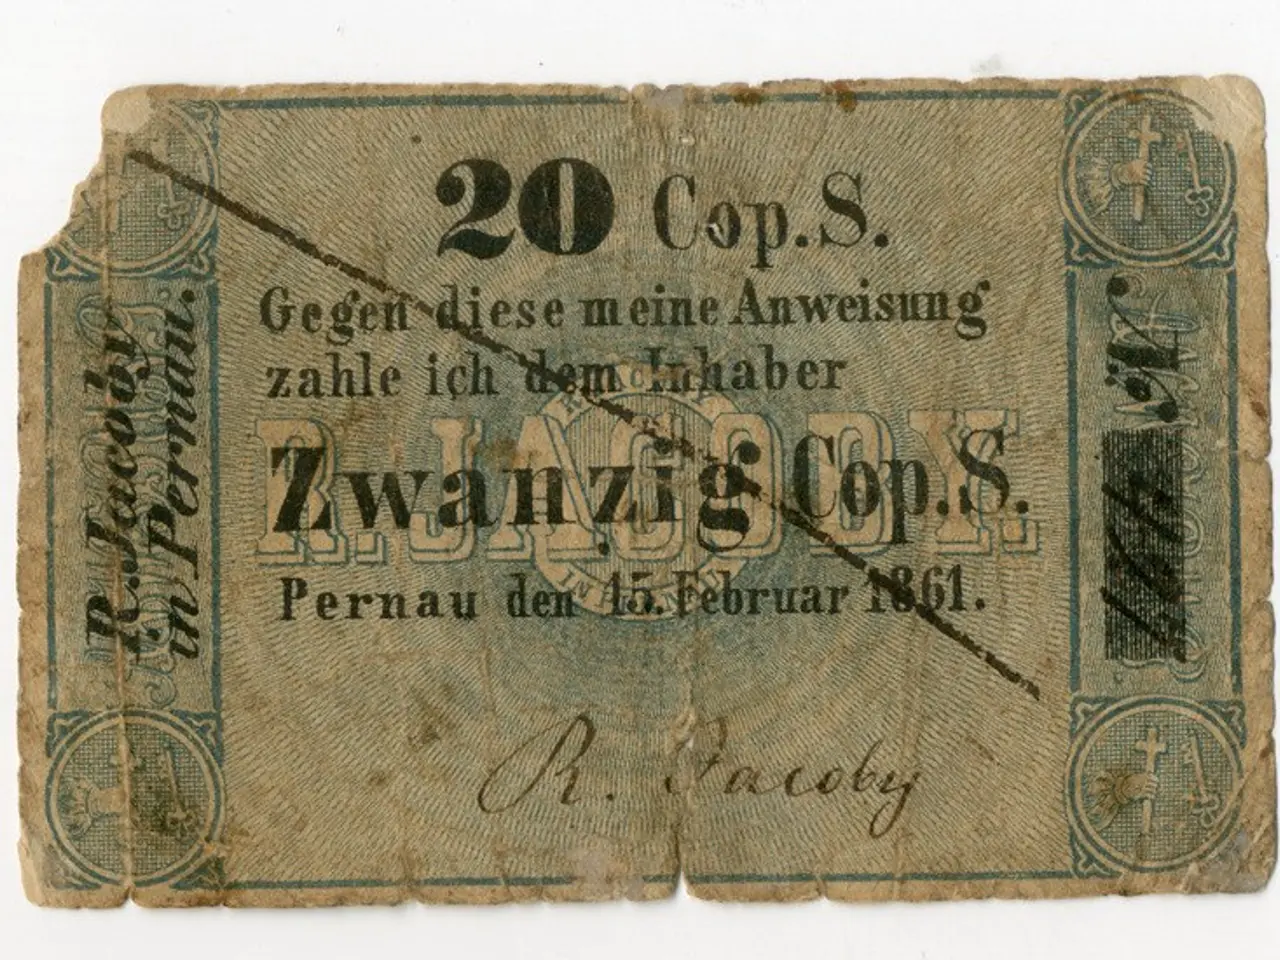 20 Cop. S.
Gegen diese meine Anweisung
zahle ich dem Inhaber
R. JACOBY.
Zwanzig Cop. S.
Pernau den 15. Februar 1861.
R. Jacoby
R. Jacoby
in Pernau.
№